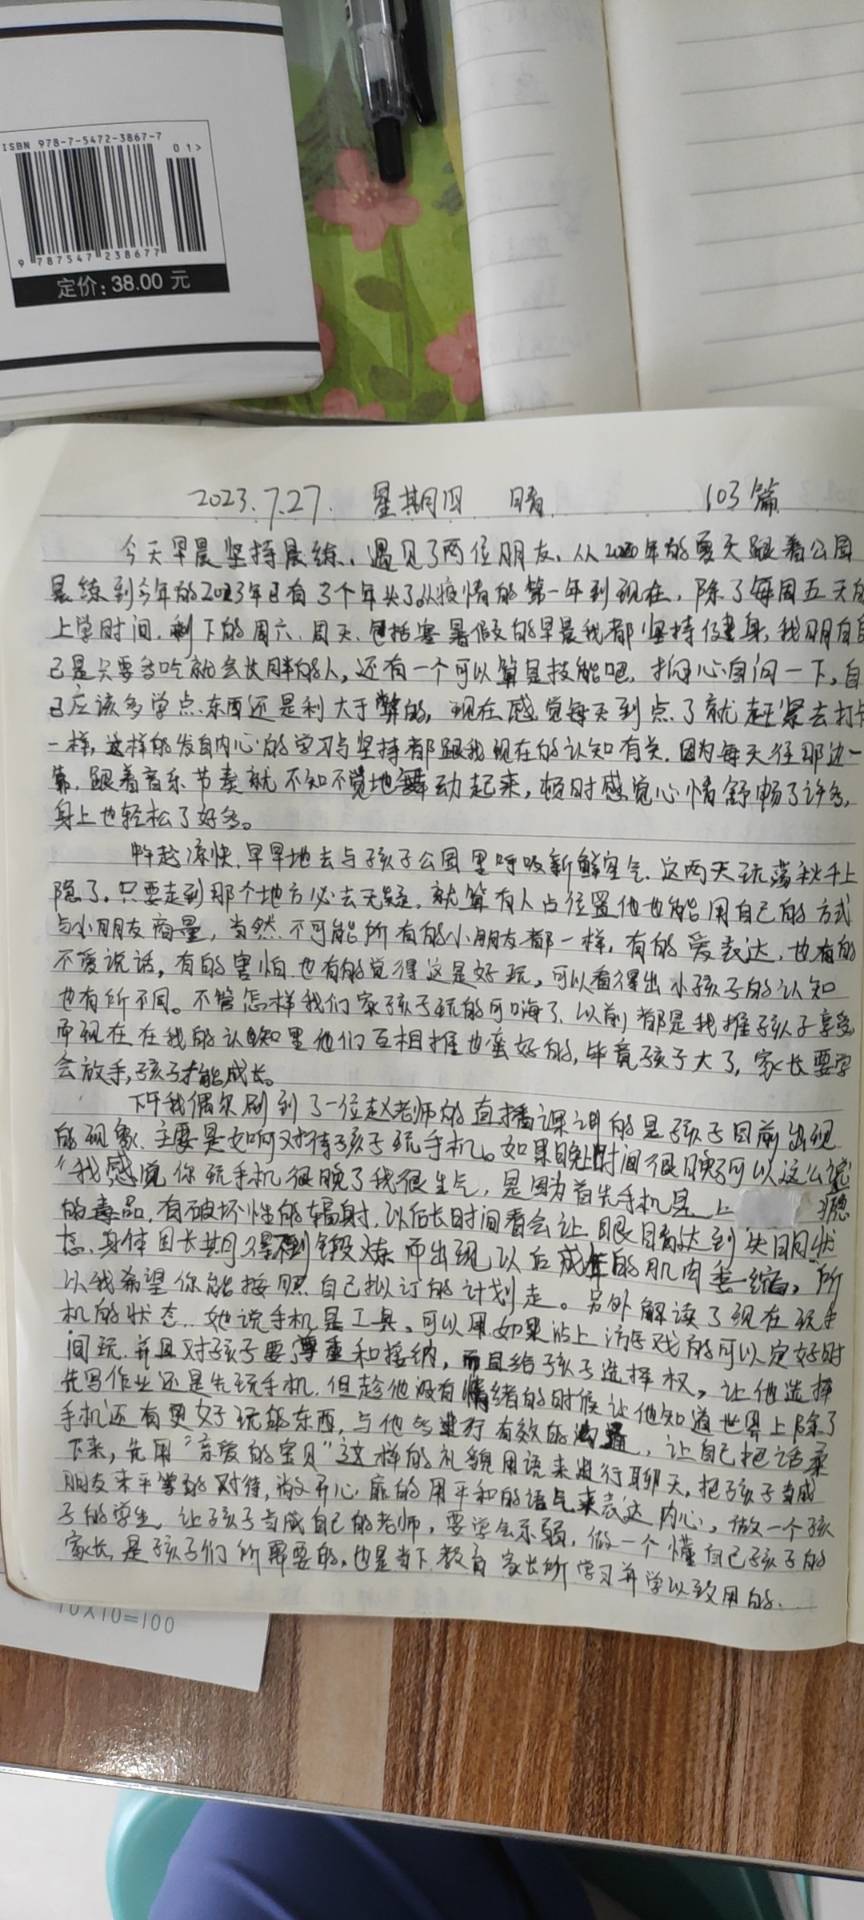 ISBN 978-7-5472-3867-7
01>
9 787547 238677
定价: 38.00 元
2023.7.27. 星期四 晴 103篇
今天早晨坚持晨练、遇见了两位朋友、从2020年的夏天跟着公园
晨练到今年的2023年已有3个年头了从疫情的第一年到现在, 除了每周五天的
上学时间, 剩下的周六、周天、包括寒暑假的早晨我都坚持健身, 我明白自
己是只要多吃就会长胖的人, 还有一个可以算是技能吧, 扪心自问一下, 自
己应该多学点东西还是利大于弊的, 现在感觉每天到点了就赶紧去打卡
一样, 这样的发自内心的学习与坚持都跟我现在的认知有关, 因为每天往那边一
第, 跟着音乐节奏就不知不觉地舞动起来, 顿时感觉心情舒畅了许多,
身上也轻松了好多。
趁凉快, 早早地去与孩子公园里呼吸新鲜空气, 这两天玩荡秋千上
隐了, 只要走到那个地方必去无疑, 就算有人占位置他也能用自己的方式
与小朋友商量, 当然不可能所有的小朋友都一样, 有的爱表达, 也有的
不爱说话, 有的害怕也有的觉得这是好玩, 可以看得出小孩子的认知
也有所不同。不管怎样我们家孩子玩的可嗨了, 以前都是我推孩子享受
而现在在我的认知里他们互相推也蛮好的, 毕竟孩子大了, 家长要学
会放手, 孩子才能成长。
下午我偶尔刷到了一位赵老师的直播课讲的是孩子目前出现
的现象, 主要是如何对待孩子玩手机。如果晚上时间很晚了可以这么说
“我感觉你玩手机很晚了我很生气, 是因为首先手机是上 瘾
的毒品, 有破坏性的辐射, 以后长时间看会让眼睛达到失明状
态, 身体因长期得不到锻炼而出现以后成年的肌肉萎缩, 所
以我希望你能按照自己拟订的计划走。另外解读了现在玩手
机的状态, 她说手机是工具, 可以用如果沾上游戏的可以定好时
间玩, 并且对孩子要尊重和接纳, 而且给孩子选择权, 让他选择
先写作业还是先玩手机, 但趁他没有情绪的时候让他知道世界上除了
手机还有更好玩的东西, 与他多进行有效的沟通, 让自己把话柔
下来, 先用“亲爱的宝贝”这样的礼貌用语来进行聊天, 把孩子当成
朋友来平等的对待, 敞开心扉的用平和的语气来表达内心, 做一个孩
子的学生, 让孩子当成自己的老师, 要学会示弱, 做一个懂自己孩子的
家长, 是孩子们所需要的, 也是当下教育家长所学习并学以致用的.
10×10=100